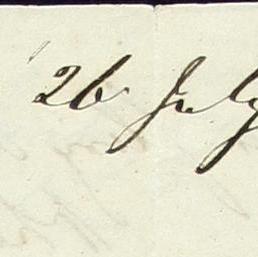 26 July